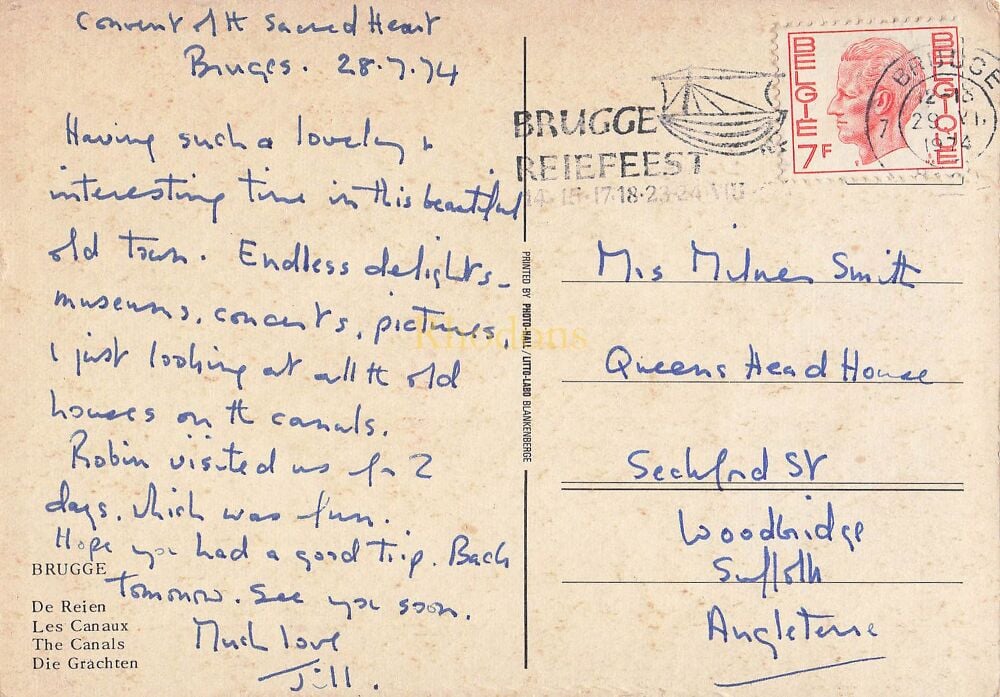 Convent of tt Sacred Heart
Bruges. 28.7.74
Having such a lovely &
interesting time in this beautiful
old town. Endless delights -
museums, concerts, pictures,
& just looking at all tt old
houses on tt canals.
Robin visited us for 2
days, which was fun.
Hope you had a good trip. Back
tomorrow. See you soon.
Much love
Jill.
BRUGGE
De Reien
Les Canaux
The Canals
Die Grachten
PRINTED BY PHOTO-HALL / LITTO-LABO BLANKENBERGE
Rhodans
BRUGGE
REIEFEEST
14-15-17-18-23-24 VIII
BELGIE 7F
BELGIQUE
BRUGGE
29
1974
Mrs Milner Smith
Queens Head House
Seckford St
Woodbridge
Suffolk
Angleterre